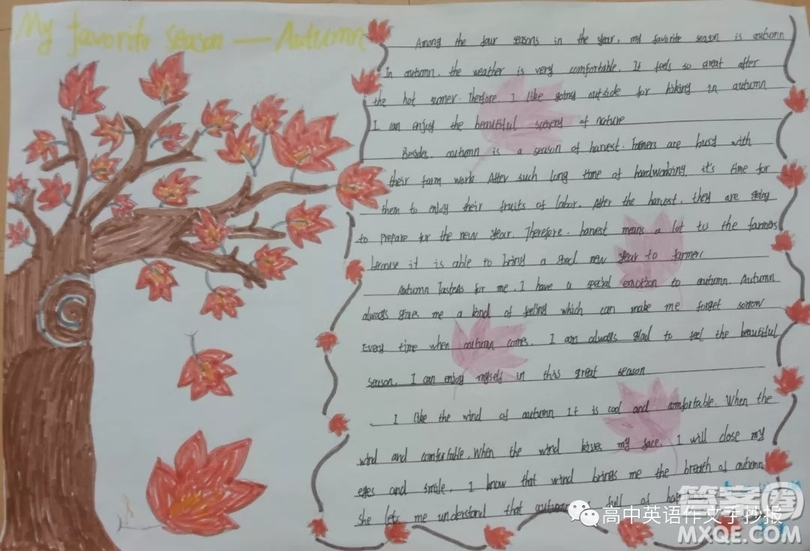 My favorite season — Autumn
Among the four seasons in the year, my favorite season is autumn
In autumn, the weather is very comfortable. It feels so great after
the hot summer. Therefore I like going outside for hiking in autumn
I can enjoy the beautiful scenery of nature
Besides, autumn is a season of harvest. Farmers are busy with
their farm work. After such long time of hardworking it's time for
them to enjoy their fruits of labor. After the harvest, they are going
to prepare for the new year. Therefore, harvest means a lot to the farmers
because it is able to bring a good new year to farmer
Autumn for me. I have a special emotion to autumn. Autumn
always gives me a kind of feeling which can make me forget sorrow
Every time when autumn comes, I am always glad to feel the beautiful
season. I can enjoy myself in this great season
I like the wind of autumn It is cool and comfortable. When the
wind and comfortable. When the wind kisses my face, I will close my
eyes and smile. I know that wind brings me the breath of autumn
She lets me understand that autumn is full of
高中英语作文手抄报
答案圈
MXQE.COM